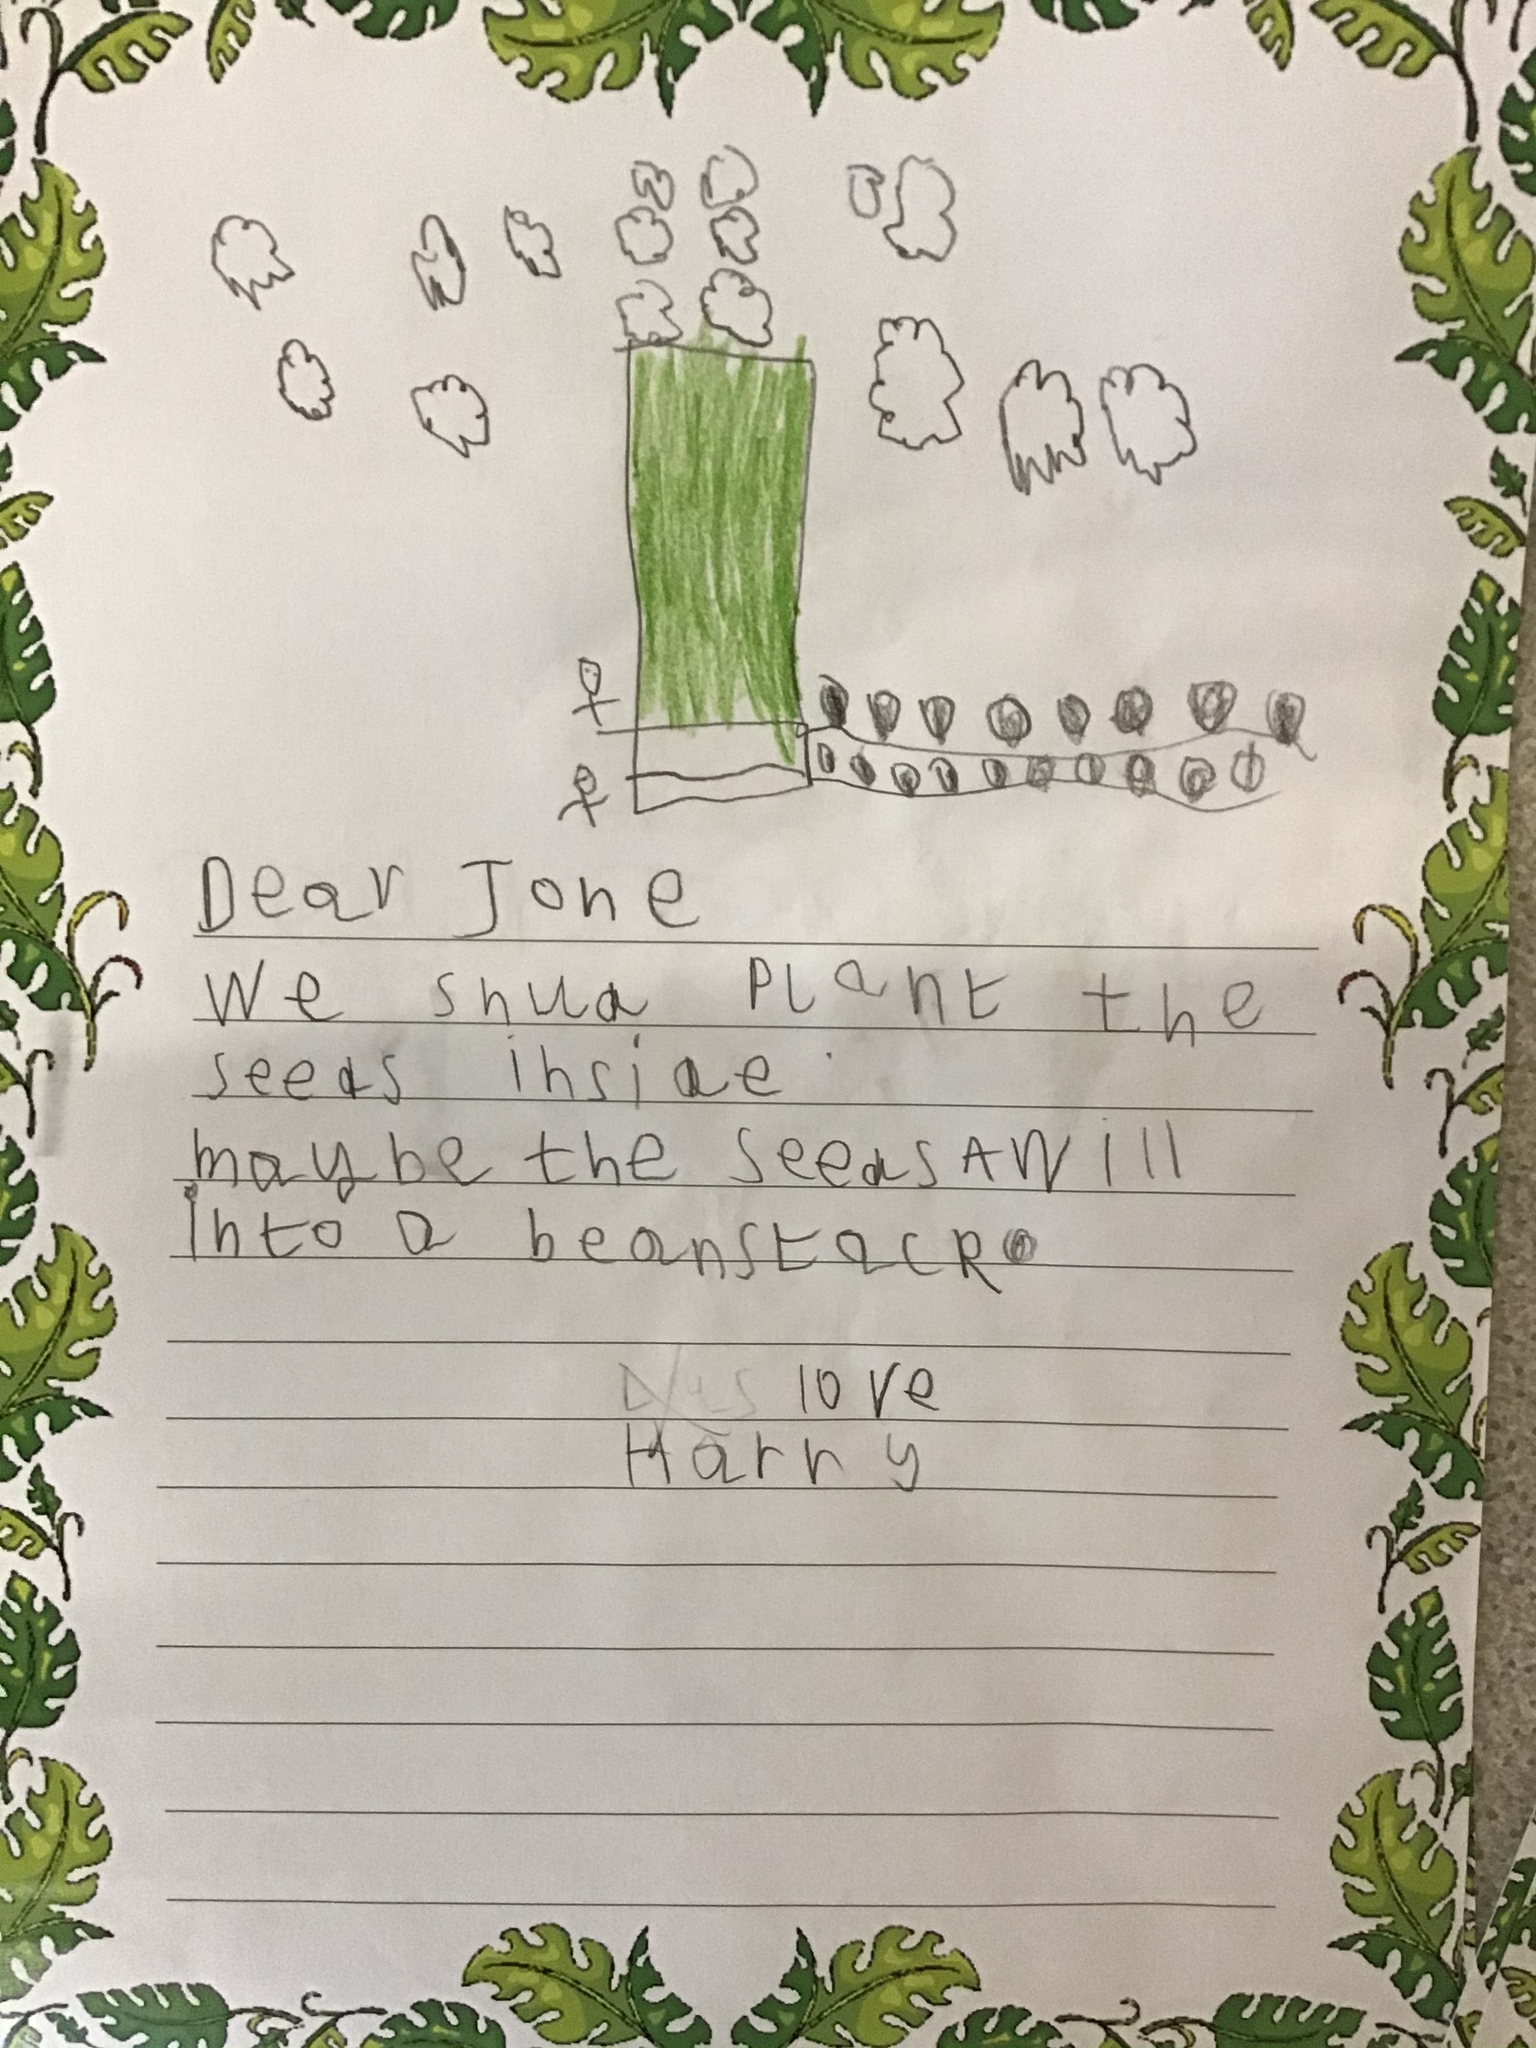 Dear Jone
We shud Plant the
seeds inside
maybe the seedsAWill
into a beanstacR
love
Harry